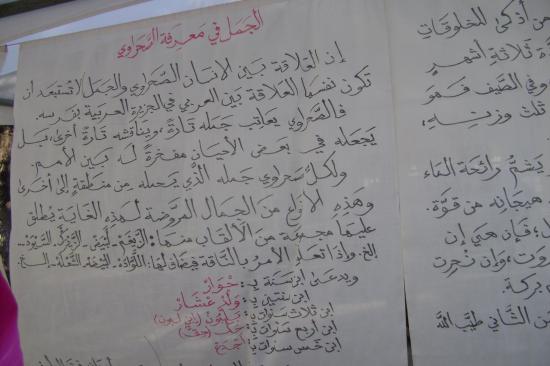 الجمل في معرفة الصحراوي
إن العلاقة بين الإنسان الصحراوي والجمل لا تستبعد أن
تكون نفسها العلاقة بين العربي في الجزيرة العربية بفرسه.
فالصحراوي يعاتب جمله تارة، ويناقشه تارة أخرى، بل
يجعله في بعض الأحيان مفخرة له بين الأمم.
ولكل صحراوي جمله الذي يحمله من منطقة إلى أخرى
وهذه الأنواع من الجمال المروضة لهذه الغاية يُطلق
عليها مجموعة من الألقاب منها:
إلخ. وإذا تعلق الأمر بالناقة فيقال لها:
ويدعى ابن سنة بـ: حوار
ابن سنتين بـ: ولد عشار
ابن ثلاث سنوات بـ: بلبون (ابن لبون)
ابن أربع سنوات بـ: حك (حق)
ابن خمس سنوات بـ: أجدع
من أذكى المخلوقات
ثلاثة أشهر
وفي الصيف فهو
ثلث وزنه،
يشم رائحة الماء
هيجانه من قوة.
، فإن هي إن
وإن نحرت
بركة.
الثاني طيب الله